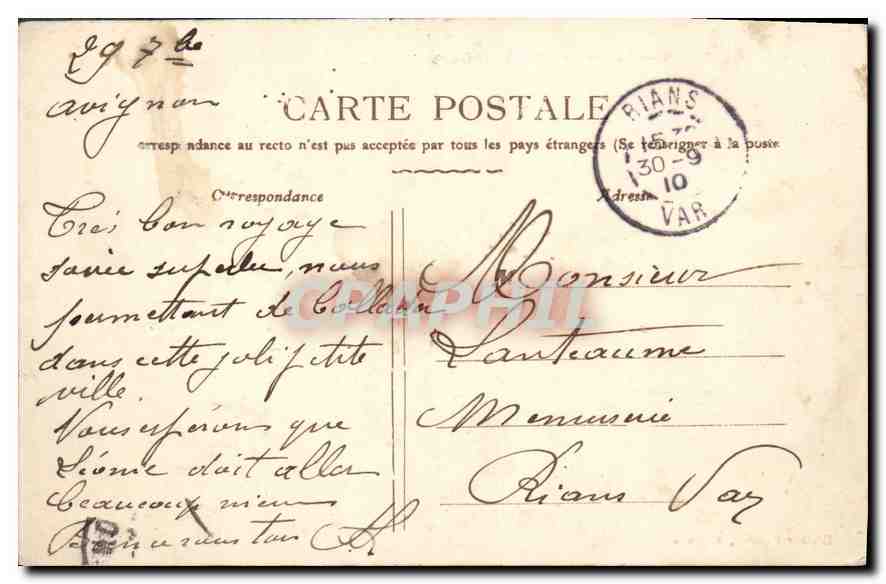 29 7bre
avignon
CARTE POSTALE
orrespondance au recto n'est pas acceptée par tous les pays étrangers (Se renseigner à la poste
RIANS
15
30-9
10
VAR
Correspondance
Adresse
Très bon voyage
soirée superbe, nous
permettant de
dans cette joli petite
ville.
Nous espérons que
doit aller
beaucoup mieux
vous tous
Monsieur
Lanteaume
Menuiserie
Rians Var
CPAPHIL